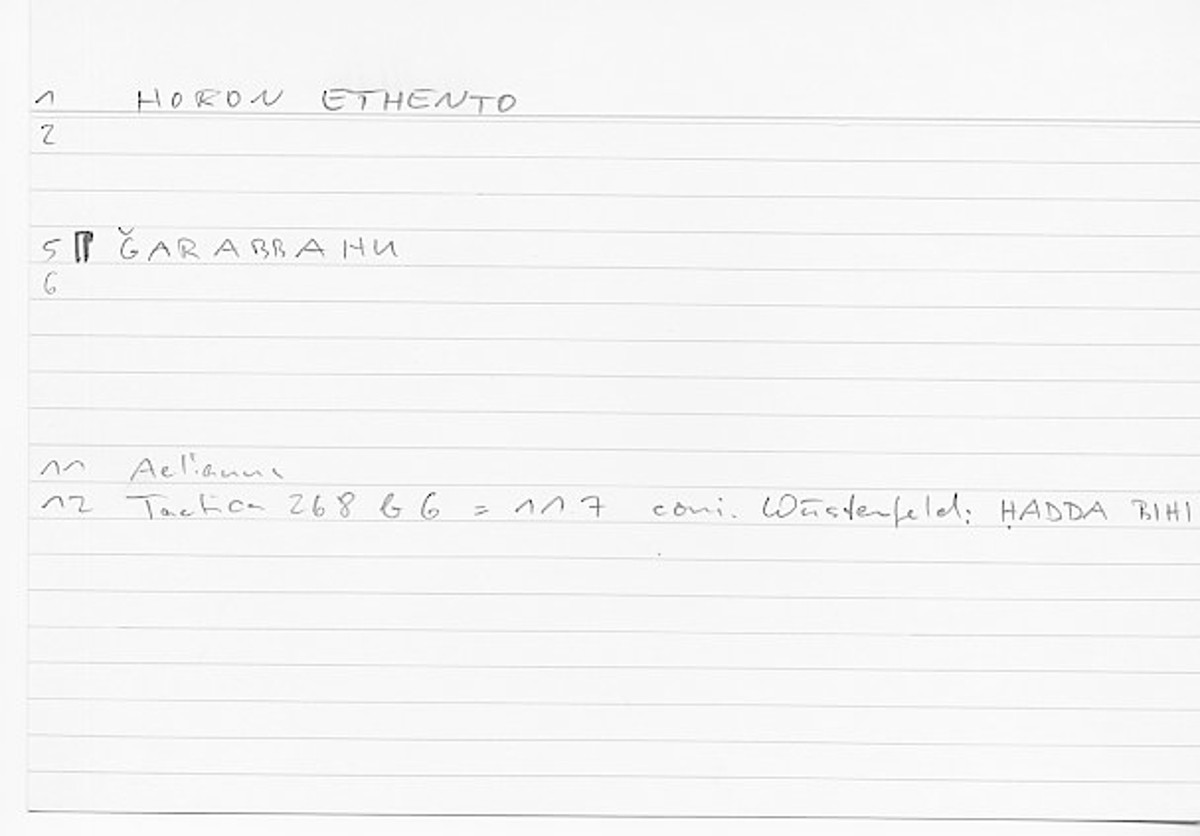 1 HORON ETHENTO
2
5 ǦARABBAHU
6
11 Aelianus
12 Tactica 268 b 6 = 117 coni. Wüstenfeld: ḤADDA BIHI